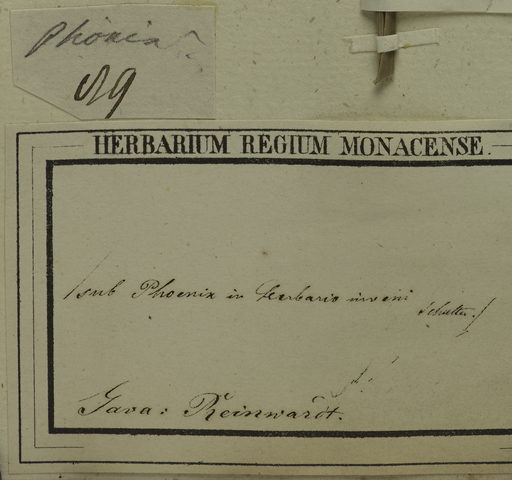 Phönix
89
HERBARIUM REGIUM MONACENSE.
/sub Phoenix in herbario inveni
Java: Reinwardt.